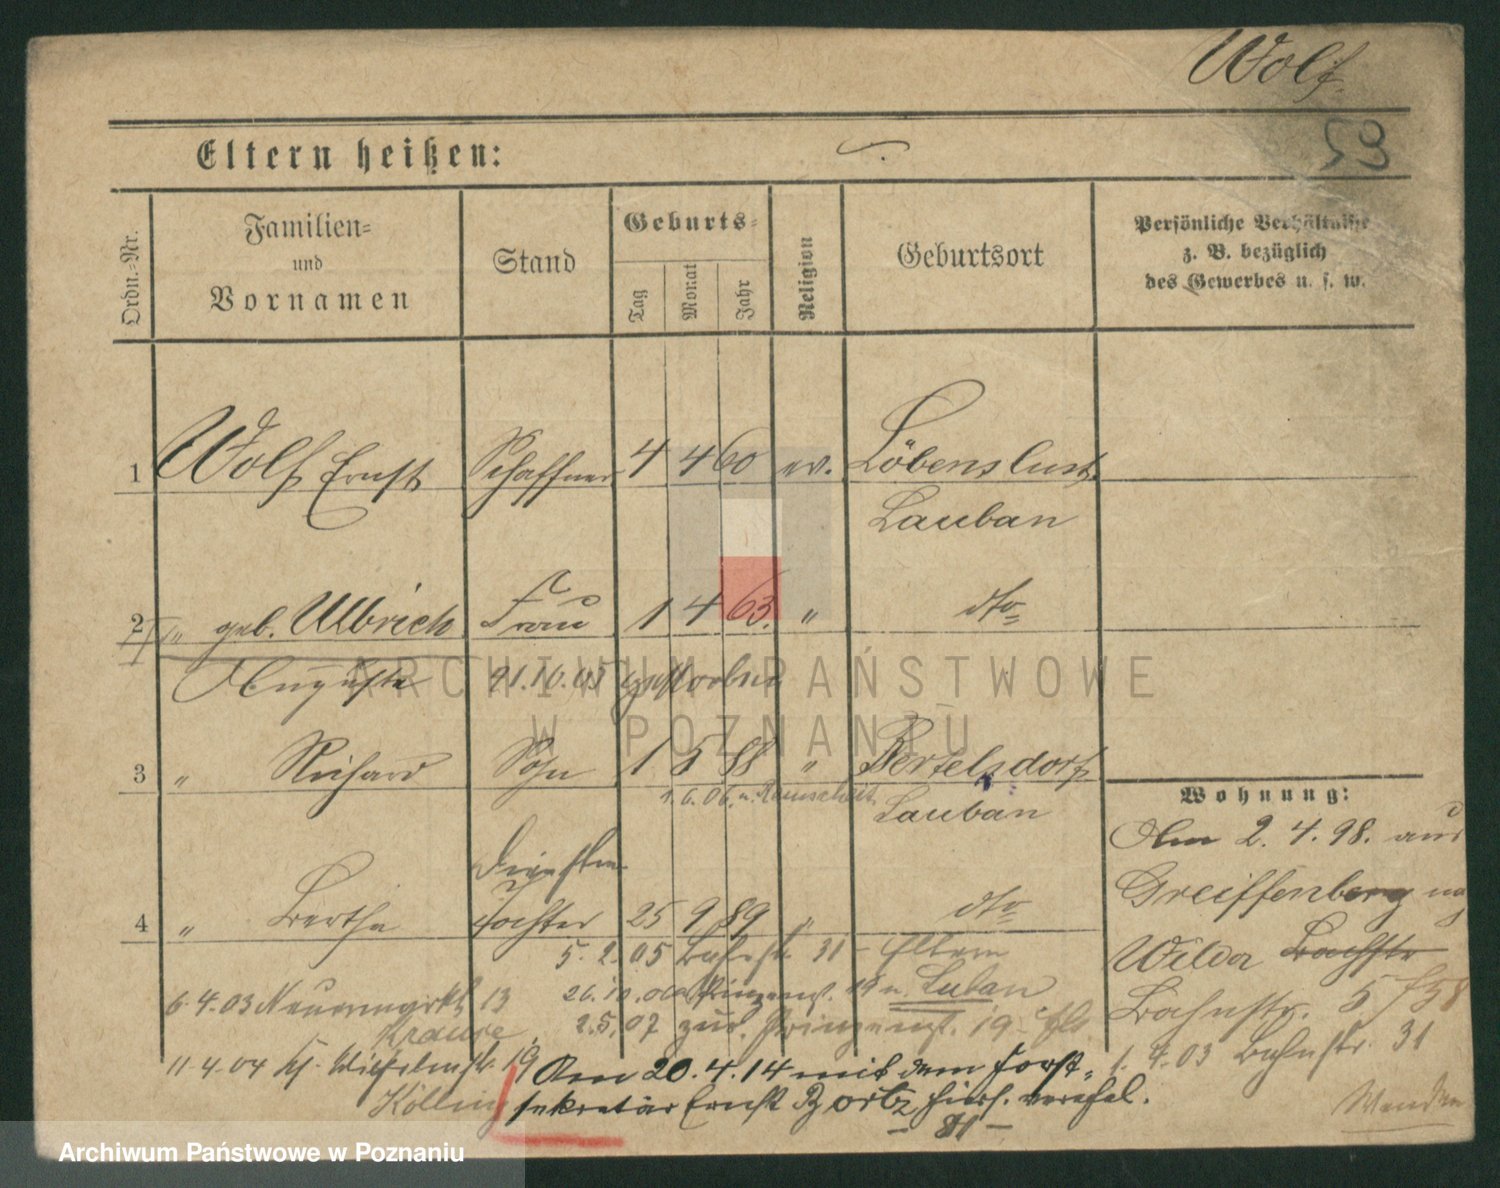 Wolf.
59
Eltern heißen:
Ordn.-Nr.
Familien-
und
Vornamen
Stand
Geburts-
Tag
Monat
Jahr
Religion
Geburtsort
Persönliche Verhältnisse
z. B. bezüglich
des Gewerbes u. s. w.
1 Wolf Ernst Schaffner 4 4 60 ev. Löbenslust
Lauban
2 " geb. Ulbrich Frau 1 4 63. " dto
Auguste 21.10.05 gestorben
3 " Richard Sohn 1 5 88 " Bertelsdorf
1.6.06. n. Remscheid
Lauban
Wohnung:
Am 2.4.98. aus
Greiffenberg
Wilda Bachstr
Bahnstr. 5/58
1.4.03 Bahnstr. 31
4 " Bertha Tochter 25 9 89 " dto
5.2.05 Bahnstr. 31 - Eltern
6.4.03 Neuermarkt 13
Krause
26.10.06 Prinzenst. 19 n. Luban
2.5.07 zur. Prinzenst. 19
11.4.04 Wilhelmstr. 19
Kölling
Am 20.4.14 mit dem Forst-
sekretär Ernst Bortz, hier. verehel.
ARCHIWUM PAŃSTWOWE
W POZNANIU
Archiwum Państwowe w Poznaniu